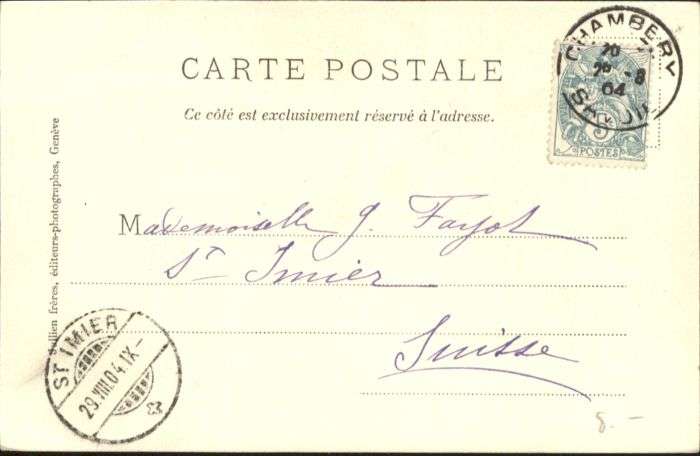 CARTE POSTALE
Ce côté est exclusivement réservé à l'adresse.
CHAMBERY
20
29 -8
04
SAVOIE
5
POSTES
Mademoiselle J. Fayot
St Imier
Suisse
Jullien frères, éditeurs-photographes, Genève
ST IMIER
29.VIII.04.IX-
8.-